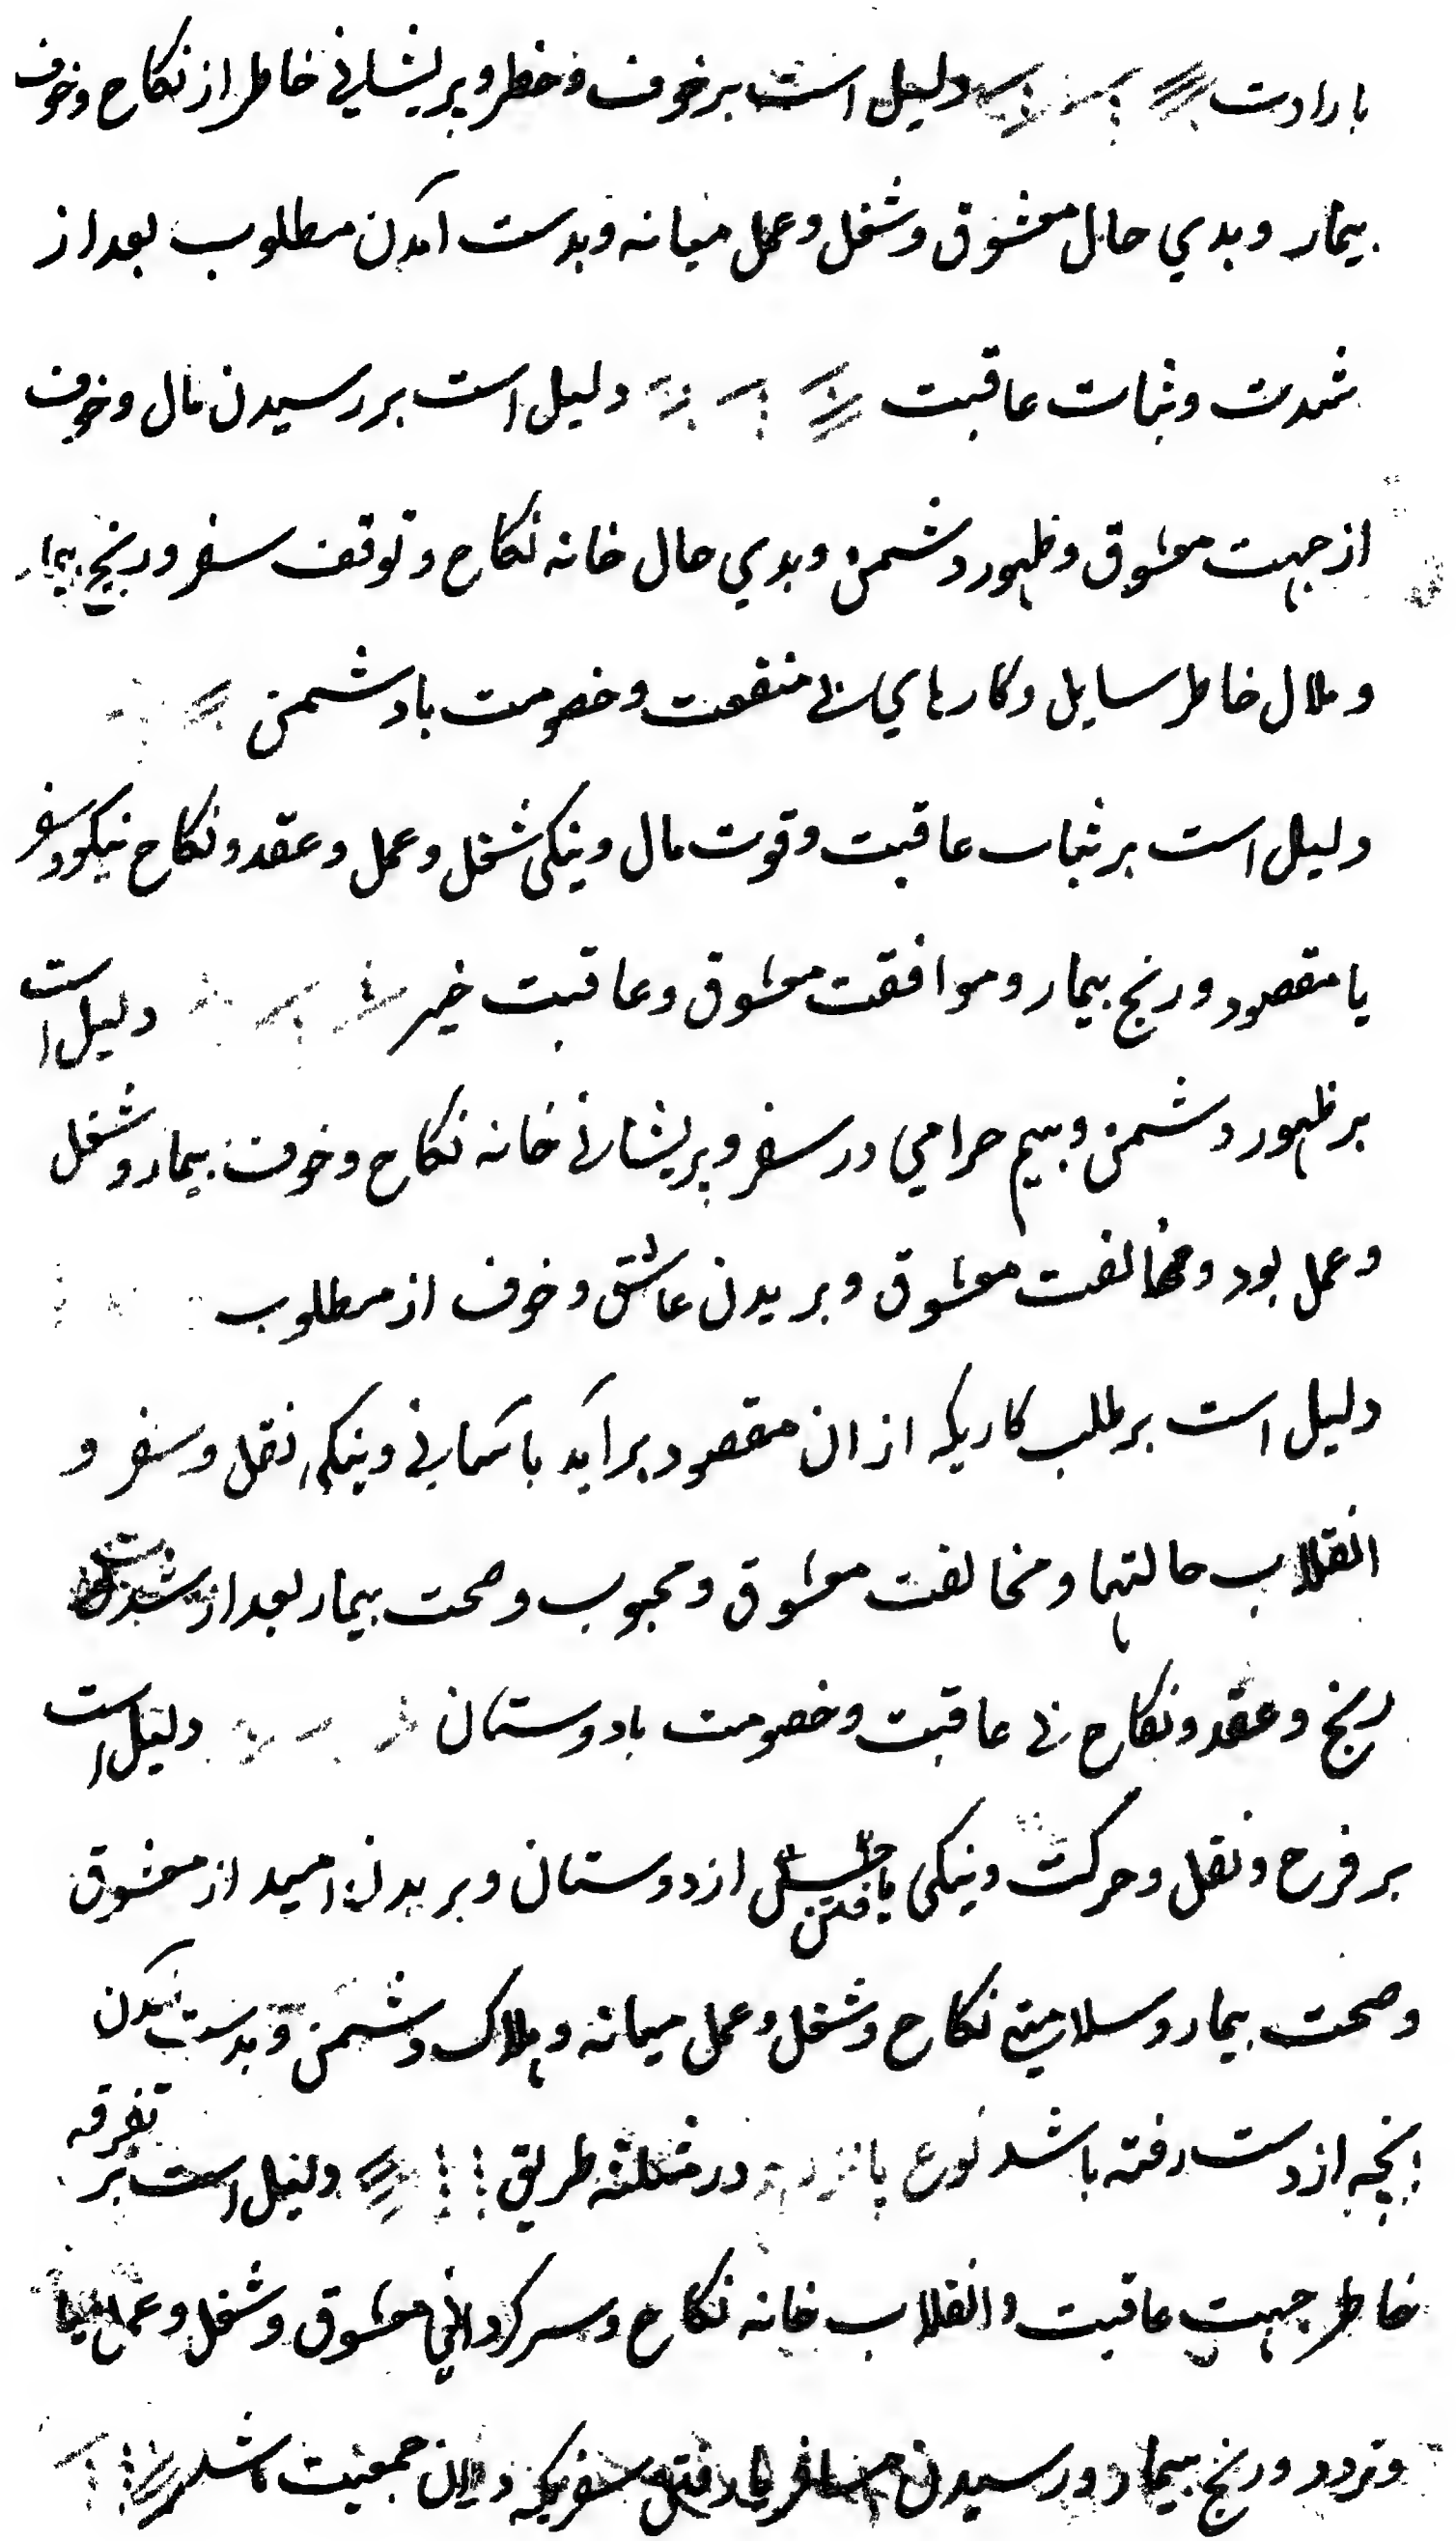 بارادت دلیل است برخوف وخطر و پریشانی خاطر از نکاح وخوف
بیمار و بدي حال معشوق و شغل و عمل میانه و بدست آمدن مطلوب بعد از
شدت و ثبات عاقبت دلیل است بر رسیدن مال وخوف
از جهت معشوق و ظهور دشمن و بدي حال خانه نکاح و توقف سفر و رنج بیمار
و ملال خاطر سایل و کارهاي بی منفعت و خصومت بادشمن
دلیل است بر ثبات عاقبت و قوت مال و نیکی شغل و عمل و عقد و نکاح نیکو و سفر
با مقصود و رنج بیمار و موافقت معشوق و عاقبت خیر دلیل است
بر ظهور دشمن و بیم حرامي در سفر و پریشانی خانه نکاح و خوف بیمار و شغل
و عمل بود و مخالفت معشوق و بریدن عاشق و خوف از مطلوب
دلیل است بر طلب کاریکه ازان مقصود براید باسانی و نیکی نقل و سفر و
انقلاب حالتها و مخالفت معشوق و محبوب و صحت بیمار بعد از شدت
رنج و عقد و نکاح بی عاقبت و خصومت بادوستان دلیل است
بر فرح و نقل و حرکت و نیکی یافتن از دوستان و بریدن امید از معشوق
و صحت بیمار و سلامتی نکاح و شغل و عمل میانه و هلاک دشمن و بدست آمدن
انچه از دست رفته باشد نوع در مثلثه طریق دلیل است بر تفرقه
خاطر جهت عاقبت و انقلاب خانه نکاح و سرکردانی معشوق و شغل و عمل
و تردد و رنج بیمار و رسیدن مسافر یا رفتن سفریکه دران جمعیت باشد